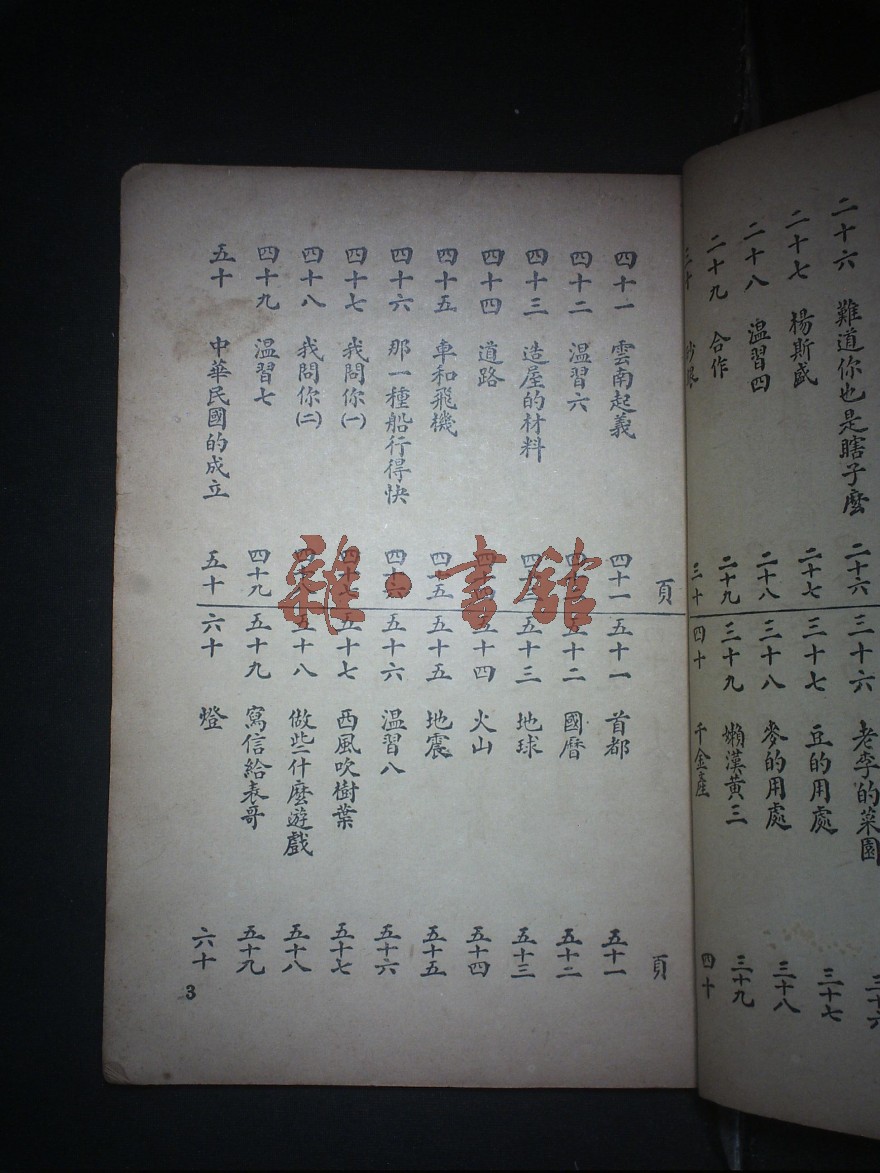 二十六 難道你也是瞎子麼 二十六
二十七 楊斯盛 二十七
二十八 温習四 二十八
二十九 合作 二十九
三十 三十
三十六 老李的菜園 三十六
三十七 豆的用處 三十七
三十八 麥的用處 三十八
三十九 懶漢黃三 三十九
四十 千金產 四十
頁
四十一 雲南起義 四十一
四十二 温習六 四十二
四十三 造屋的材料 四十三
四十四 道路 四十四
四十五 車和飛機 四十五
四十六 那一種船行得快 四十六
四十七 我問你(一) 四十七
四十八 我問你(二) 四十八
四十九 温習七 四十九
五十 中華民國的成立 五十
頁
五十一 首都 五十一
五十二 國曆 五十二
五十三 地球 五十三
五十四 火山 五十四
五十五 地震 五十五
五十六 温習八 五十六
五十七 西風吹樹葉 五十七
五十八 做些什麼遊戲 五十八
五十九 寫信給表哥 五十九
六十 燈 六十
3
雜·書館